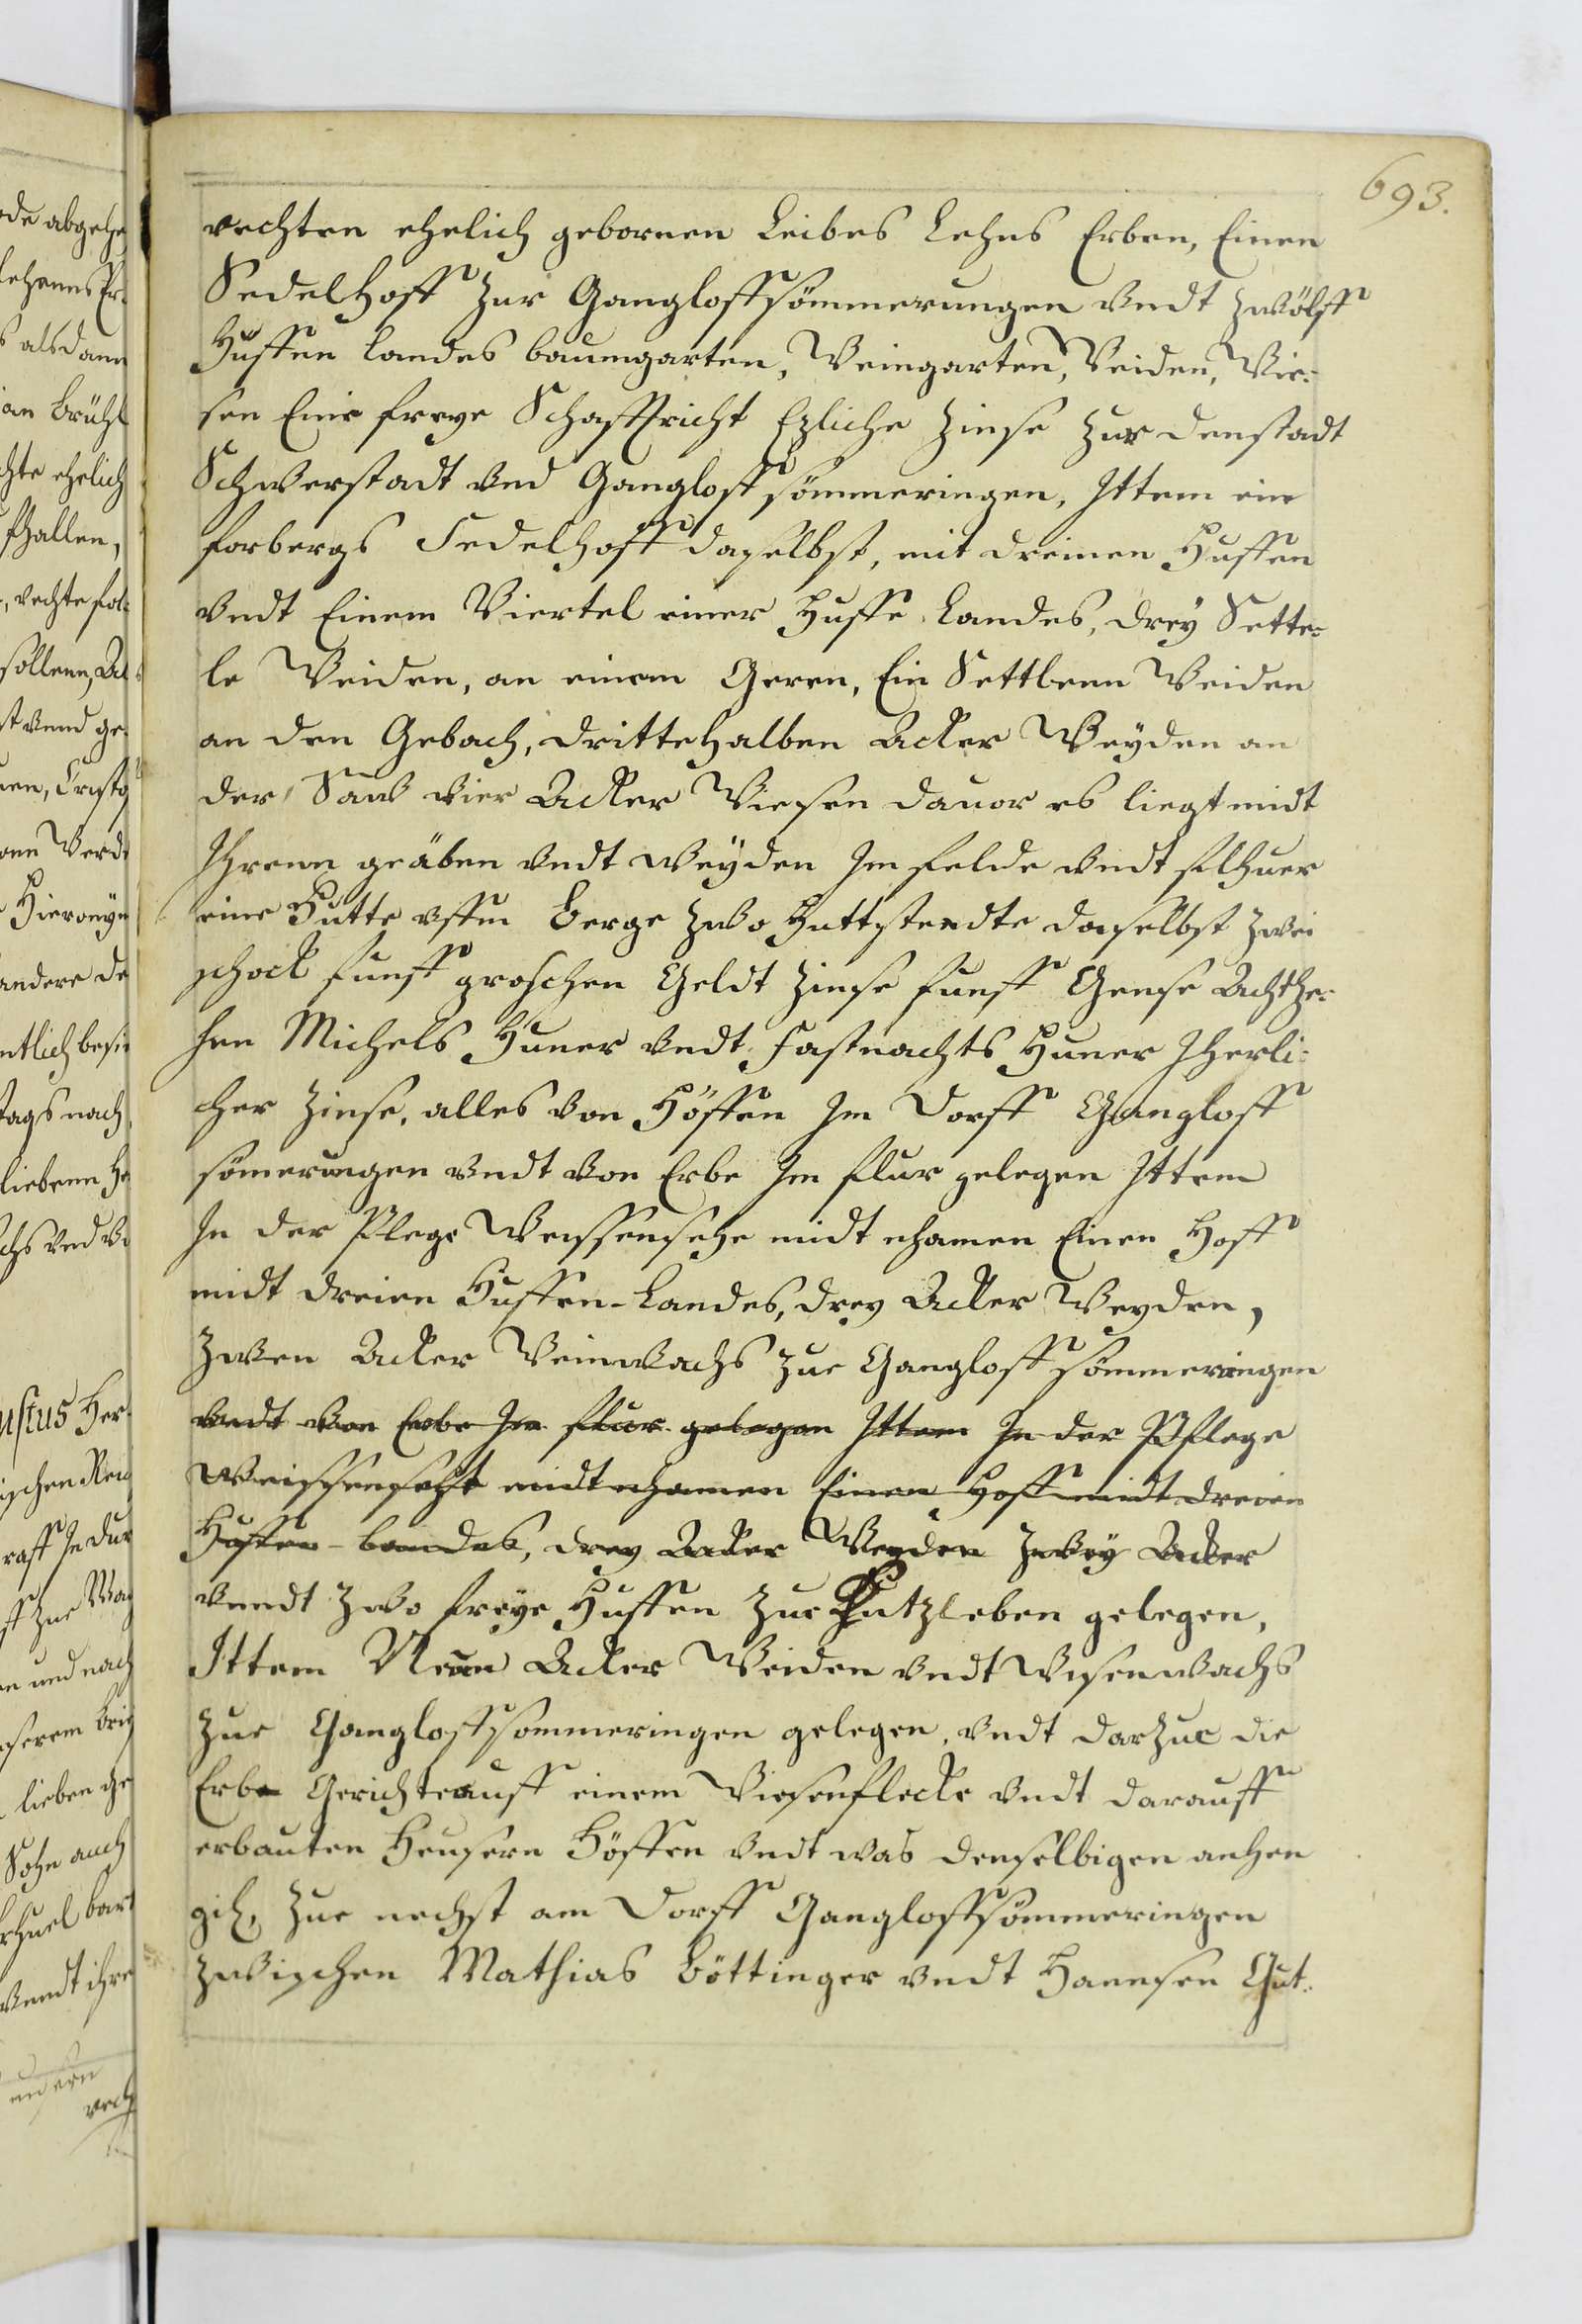 693.
rechten ehelich gebornen Leibes Lehns Erben, Einen
Sedelhoff zur Gangloffsömmerungen vndt zwölff
Huffen landes baumgarten, Weingarten, Weiden, Wie-
sen Eine freye Schafftricht Ezliche Zinse zur denstadt
Schwerstadt vnd Gangloffsömmeringen, Ittem ein
forbergs Sedelhoff daselbst, mit dreinen Huffen
vndt Einem Viertel einer Huffe Landes, drey Sette-
le Weiden, an einem Geren, Ein Settlenn Weiden
an den Gebach, drittehalben Acker Weyden an
der vier Acker Wiesen dauor es liegt midt
Ihrenn gräben vndt weyden Im felde vndt flhuer
eine Hütte vffm berge zwo Huttstendte daselbst zwei
schock funff groschen Geldt Zinse funff Gense Achtze-
hen Michels Huner vndt Fastnachts Huner Jherli-
cher Zinse, alles von Höffen Im Dorff Gangloff
sömerungen vndt von Erbe Im flur gelegen Ittem
In der Plege Weissensehe midt nhamen Einen Hoff
midt dreien Huffen-Landes, drey Acker Weyden,
zwen Acker Weinwachs zue Gangloffsömmeringen
vndt von Erbe Im flur gelegen Ittem In der Pflege
Weissensehe midt nhamen Einen Hoff midt dreien
Huffen-landes, drey Acker Weyden zwey Acker
vnndt zwo freye Huffen zue Kutzleben gelegen,
Ittem Neun Acker Weiden vndt Wisenwachs
zue Gangloffsommeringen gelegen, vndt darzue die
Erbe Gerichte auff einem Wiesenflecke vndt darauff
erbauten Heusern Höffen vndt was denselbigen anhen
gih, zue nechst am Dorff Gangloffsömmeringen
zwischen Mathias Böttinger vndt Hannsen Gut-